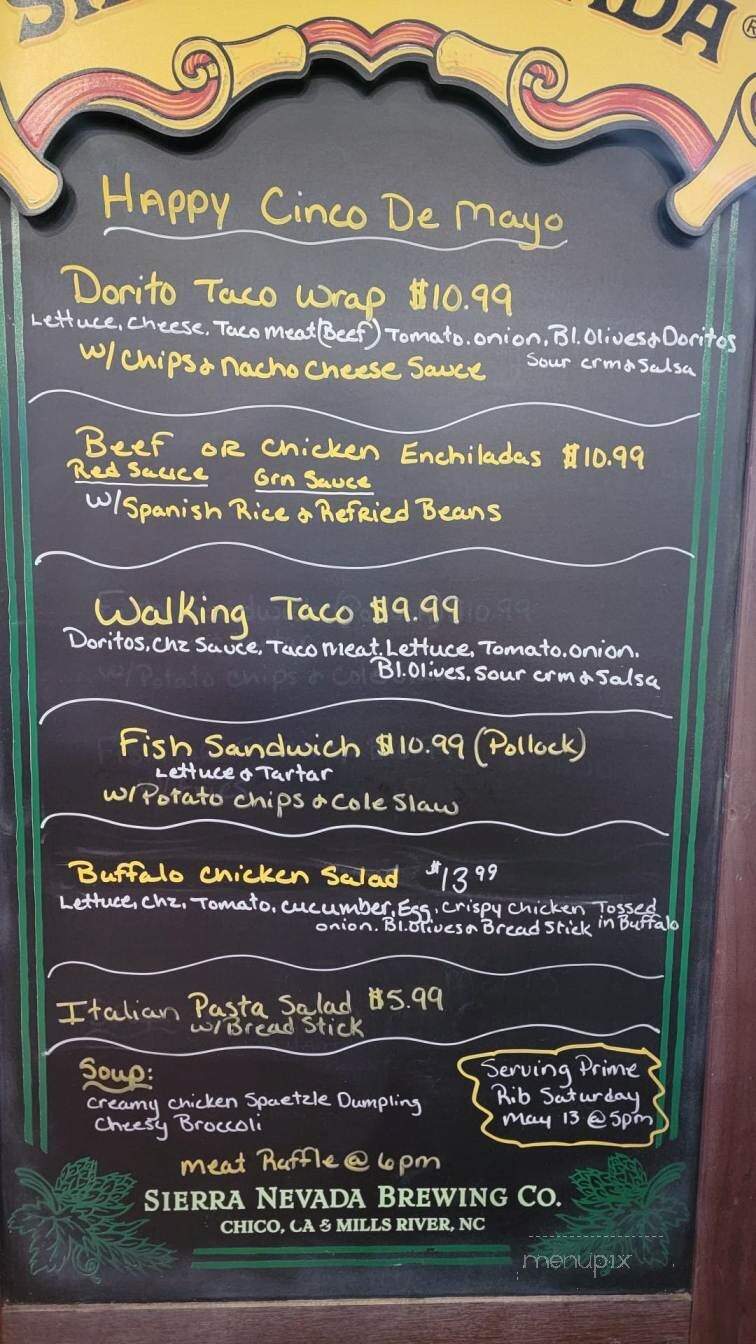 SIERRA NEVADA®
Happy Cinco De Mayo
Dorito Taco Wrap $10.99
Lettuce, Cheese, Taco meat (Beef) Tomato, onion, Bl. Olives & Doritos
Sour crm & Salsa
w/ chips & nacho cheese Sauce
Beef or Chicken Enchiladas $10.99
Red Sauce Grn Sauce
w/ Spanish Rice & Refried Beans
Walking Taco $9.99
Doritos, Chz Sauce, Taco meat, Lettuce, Tomato, onion,
Bl. Olives, Sour crm & Salsa
Fish Sandwich $10.99 (Pollock)
Lettuce & Tartar
w/ Potato chips & Cole Slaw
Buffalo Chicken Salad $13.99
Lettuce, Chz, Tomato, cucumber, Egg, Crispy Chicken Tossed in Buffalo
onion, Bl. Olives & Bread Stick
Italian Pasta Salad $5.99
w/ Bread Stick
Soup:
creamy chicken Spaetzle Dumpling
Cheesy Broccoli
Serving Prime
Rib Saturday
May 13 @ 5pm
Meat Raffle @ 6pm
SIERRA NEVADA BREWING CO.
CHICO, CA & MILLS RIVER, NC
menupix